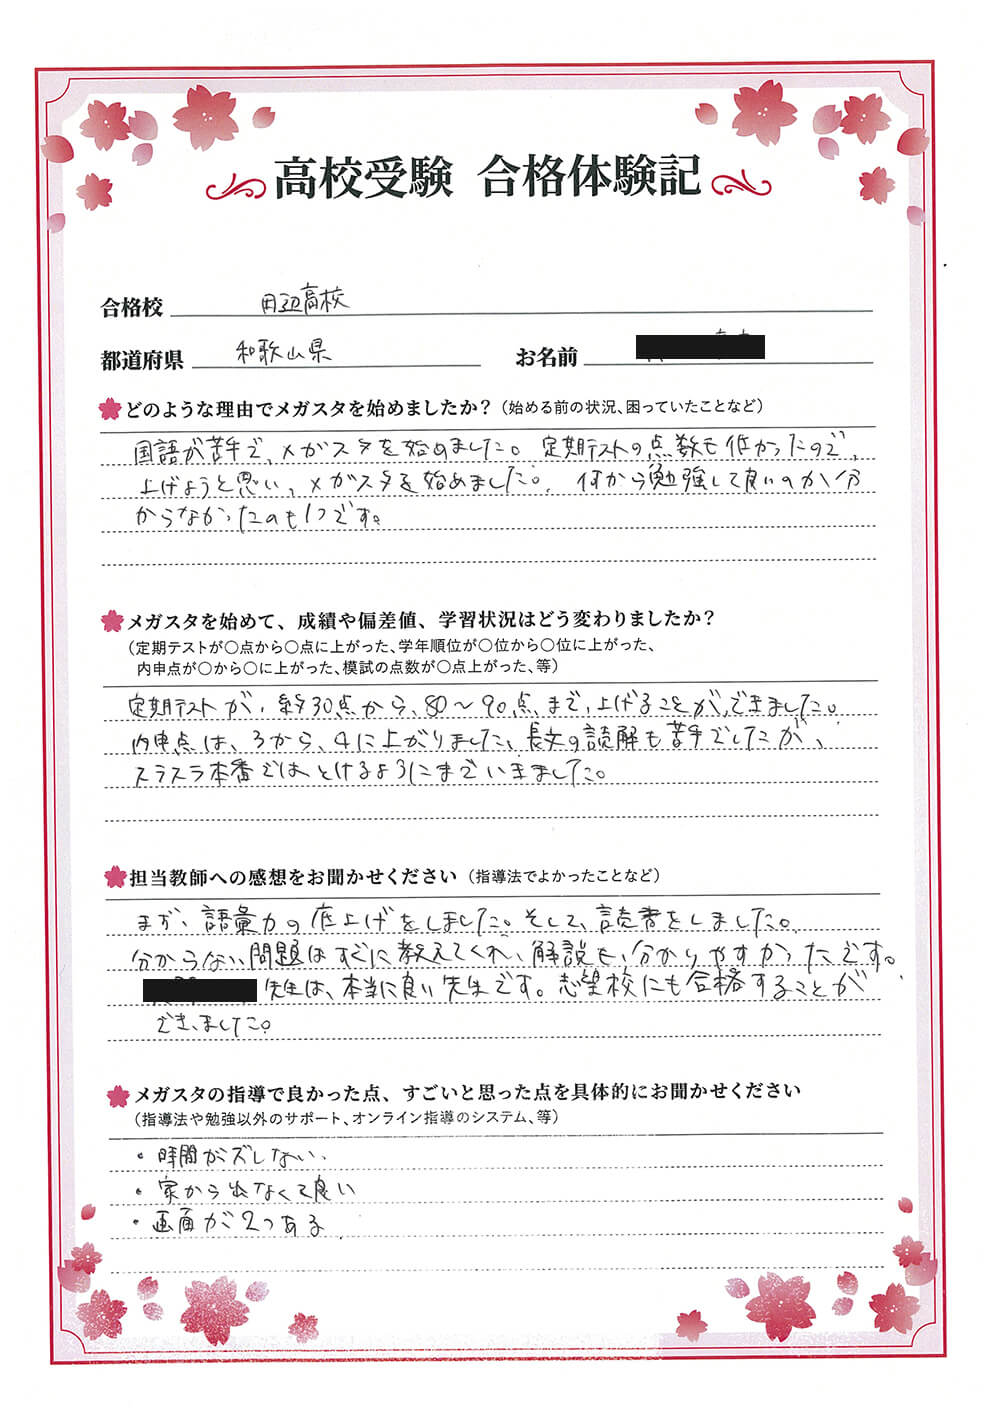 高校受験 合格体験記
合格校 田辺高校
都道府県 和歌山県 お名前
どのような理由でメガスタを始めましたか？（始める前の状況、困っていたことなど）
国語が苦手で、メガスタを始めました。定期テストの点数も低かったので、
上げようと思い、メガスタを始めました。何から勉強して良いのか分
からなかったのも1つです。
メガスタを始めて、成績や偏差値、学習状況はどう変わりましたか？
（定期テストが〇点から〇点に上がった、学年順位が〇位から〇位に上がった、
内申点が〇から〇に上がった、模試の点数が〇点上がった、等）
定期テストが、約30点から、80～90点まで、上げることができました。
内申点は、3から、4に上がりました、長文の読解も苦手でしたが、
スラスラ本番では、とけるようにまでいきました。
担当教師への感想をお聞かせください（指導法でよかったことなど）
まず、語彙力の底上げをしました。そして、読書をしました。
分からない問題はすぐに教えてくれ、解説も、分かりやすかったです。
先生は、本当に良い先生です。志望校にも合格することが
できました。
メガスタの指導で良かった点、すごいと思った点を具体的にお聞かせください
（指導法や勉強以外のサポート、オンライン指導のシステム、等）
・時間がズレない、
・家から出なくて良い
・画面が2つある